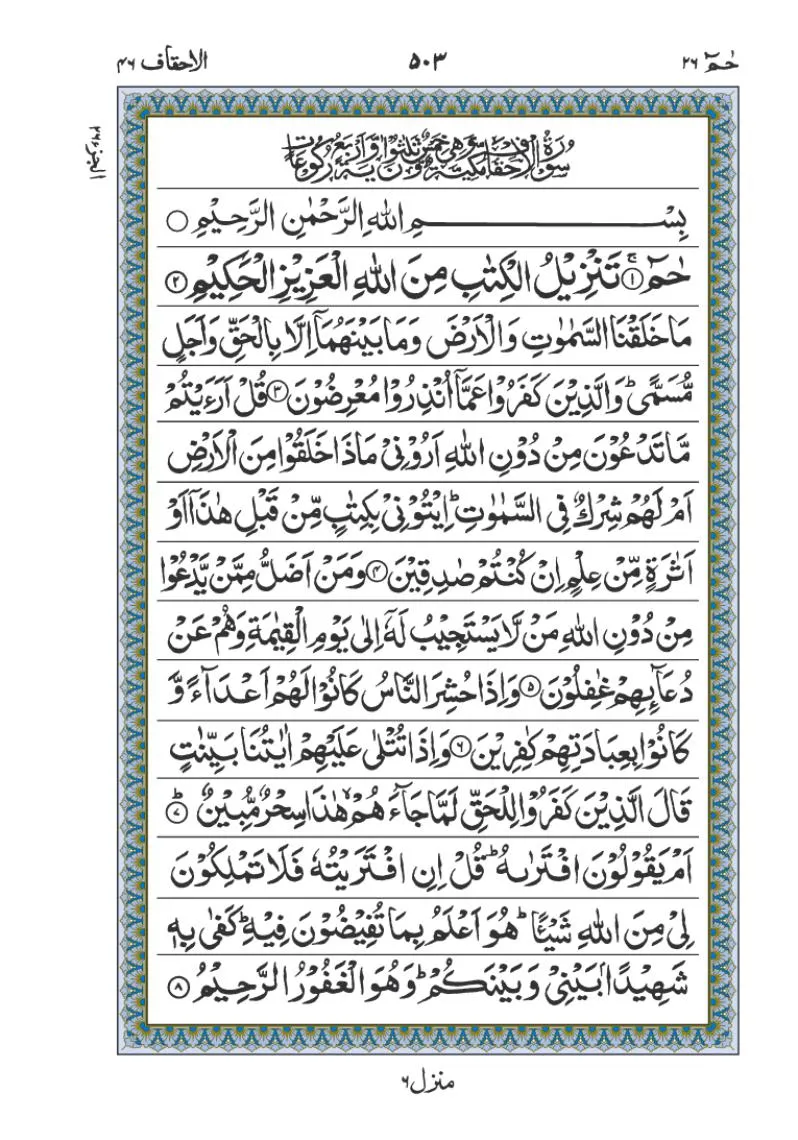 حٰمٓ ٢٦
٥٠٣
الاحقاف ٤٦
الجزء ٢٦
سُوْرَةُ الْاَحْقَافِ مَكِّيَّةٌ وَّهِيَ خَمْسٌ وَّثَلٰثُوْنَ اٰيَةً وَّاَرْبَعُ رُكُوْعَاتٍ
بِسْــــــــــــــمِ اللّٰهِ الرَّحْمٰنِ الرَّحِيْمِ ○
حٰمٓ ۚ﴿١﴾ تَنْزِيْلُ الْكِتٰبِ مِنَ اللّٰهِ الْعَزِيْزِ الْحَكِيْمِ ﴿٢﴾
مَا خَلَقْنَا السَّمٰوٰتِ وَالْاَرْضَ وَمَا بَيْنَهُمَاۤ اِلَّا بِالْحَقِّ وَاَجَلٍ
مُّسَمًّى ؕ وَالَّذِيْنَ كَفَرُوْا عَمَّاۤ اُنْذِرُوْا مُعْرِضُوْنَ ﴿٣﴾ قُلْ اَرَءَيْتُمْ
مَّا تَدْعُوْنَ مِنْ دُوْنِ اللّٰهِ اَرُوْنِيْ مَاذَا خَلَقُوْا مِنَ الْاَرْضِ
اَمْ لَهُمْ شِرْكٌ فِي السَّمٰوٰتِ ؕ اِيْتُوْنِيْ بِكِتٰبٍ مِّنْ قَبْلِ هٰذَاۤ اَوْ
اَثٰرَةٍ مِّنْ عِلْمٍ اِنْ كُنْتُمْ صٰدِقِيْنَ ﴿٤﴾ وَمَنْ اَضَلُّ مِمَّنْ يَّدْعُوْا
مِنْ دُوْنِ اللّٰهِ مَنْ لَّا يَسْتَجِيْبُ لَهٗۤ اِلٰى يَوْمِ الْقِيٰمَةِ وَهُمْ عَنْ
دُعَآىِٕهِمْ غٰفِلُوْنَ ﴿٥﴾ وَاِذَا حُشِرَ النَّاسُ كَانُوْا لَهُمْ اَعْدَآءً وَّ
كَانُوْا بِعِبَادَتِهِمْ كٰفِرِيْنَ ﴿٦﴾ وَاِذَا تُتْلٰى عَلَيْهِمْ اٰيٰتُنَا بَيِّنٰتٍ
قَالَ الَّذِيْنَ كَفَرُوْا لِلْحَقِّ لَمَّا جَآءَهُمْ ۙ هٰذَا سِحْرٌ مُّبِيْنٌ ؕ﴿٧﴾
اَمْ يَقُوْلُوْنَ افْتَرٰىهُ ؕ قُلْ اِنِ افْتَرَيْتُهٗ فَلَا تَمْلِكُوْنَ
لِيْ مِنَ اللّٰهِ شَيْـًٔا ؕ هُوَ اَعْلَمُ بِمَا تُفِيْضُوْنَ فِيْهِ ؕ كَفٰى بِهٖ
شَهِيْدًۢا بَيْنِيْ وَبَيْنَكُمْ ؕ وَهُوَ الْغَفُوْرُ الرَّحِيْمُ ﴿٨﴾
منزل ٦